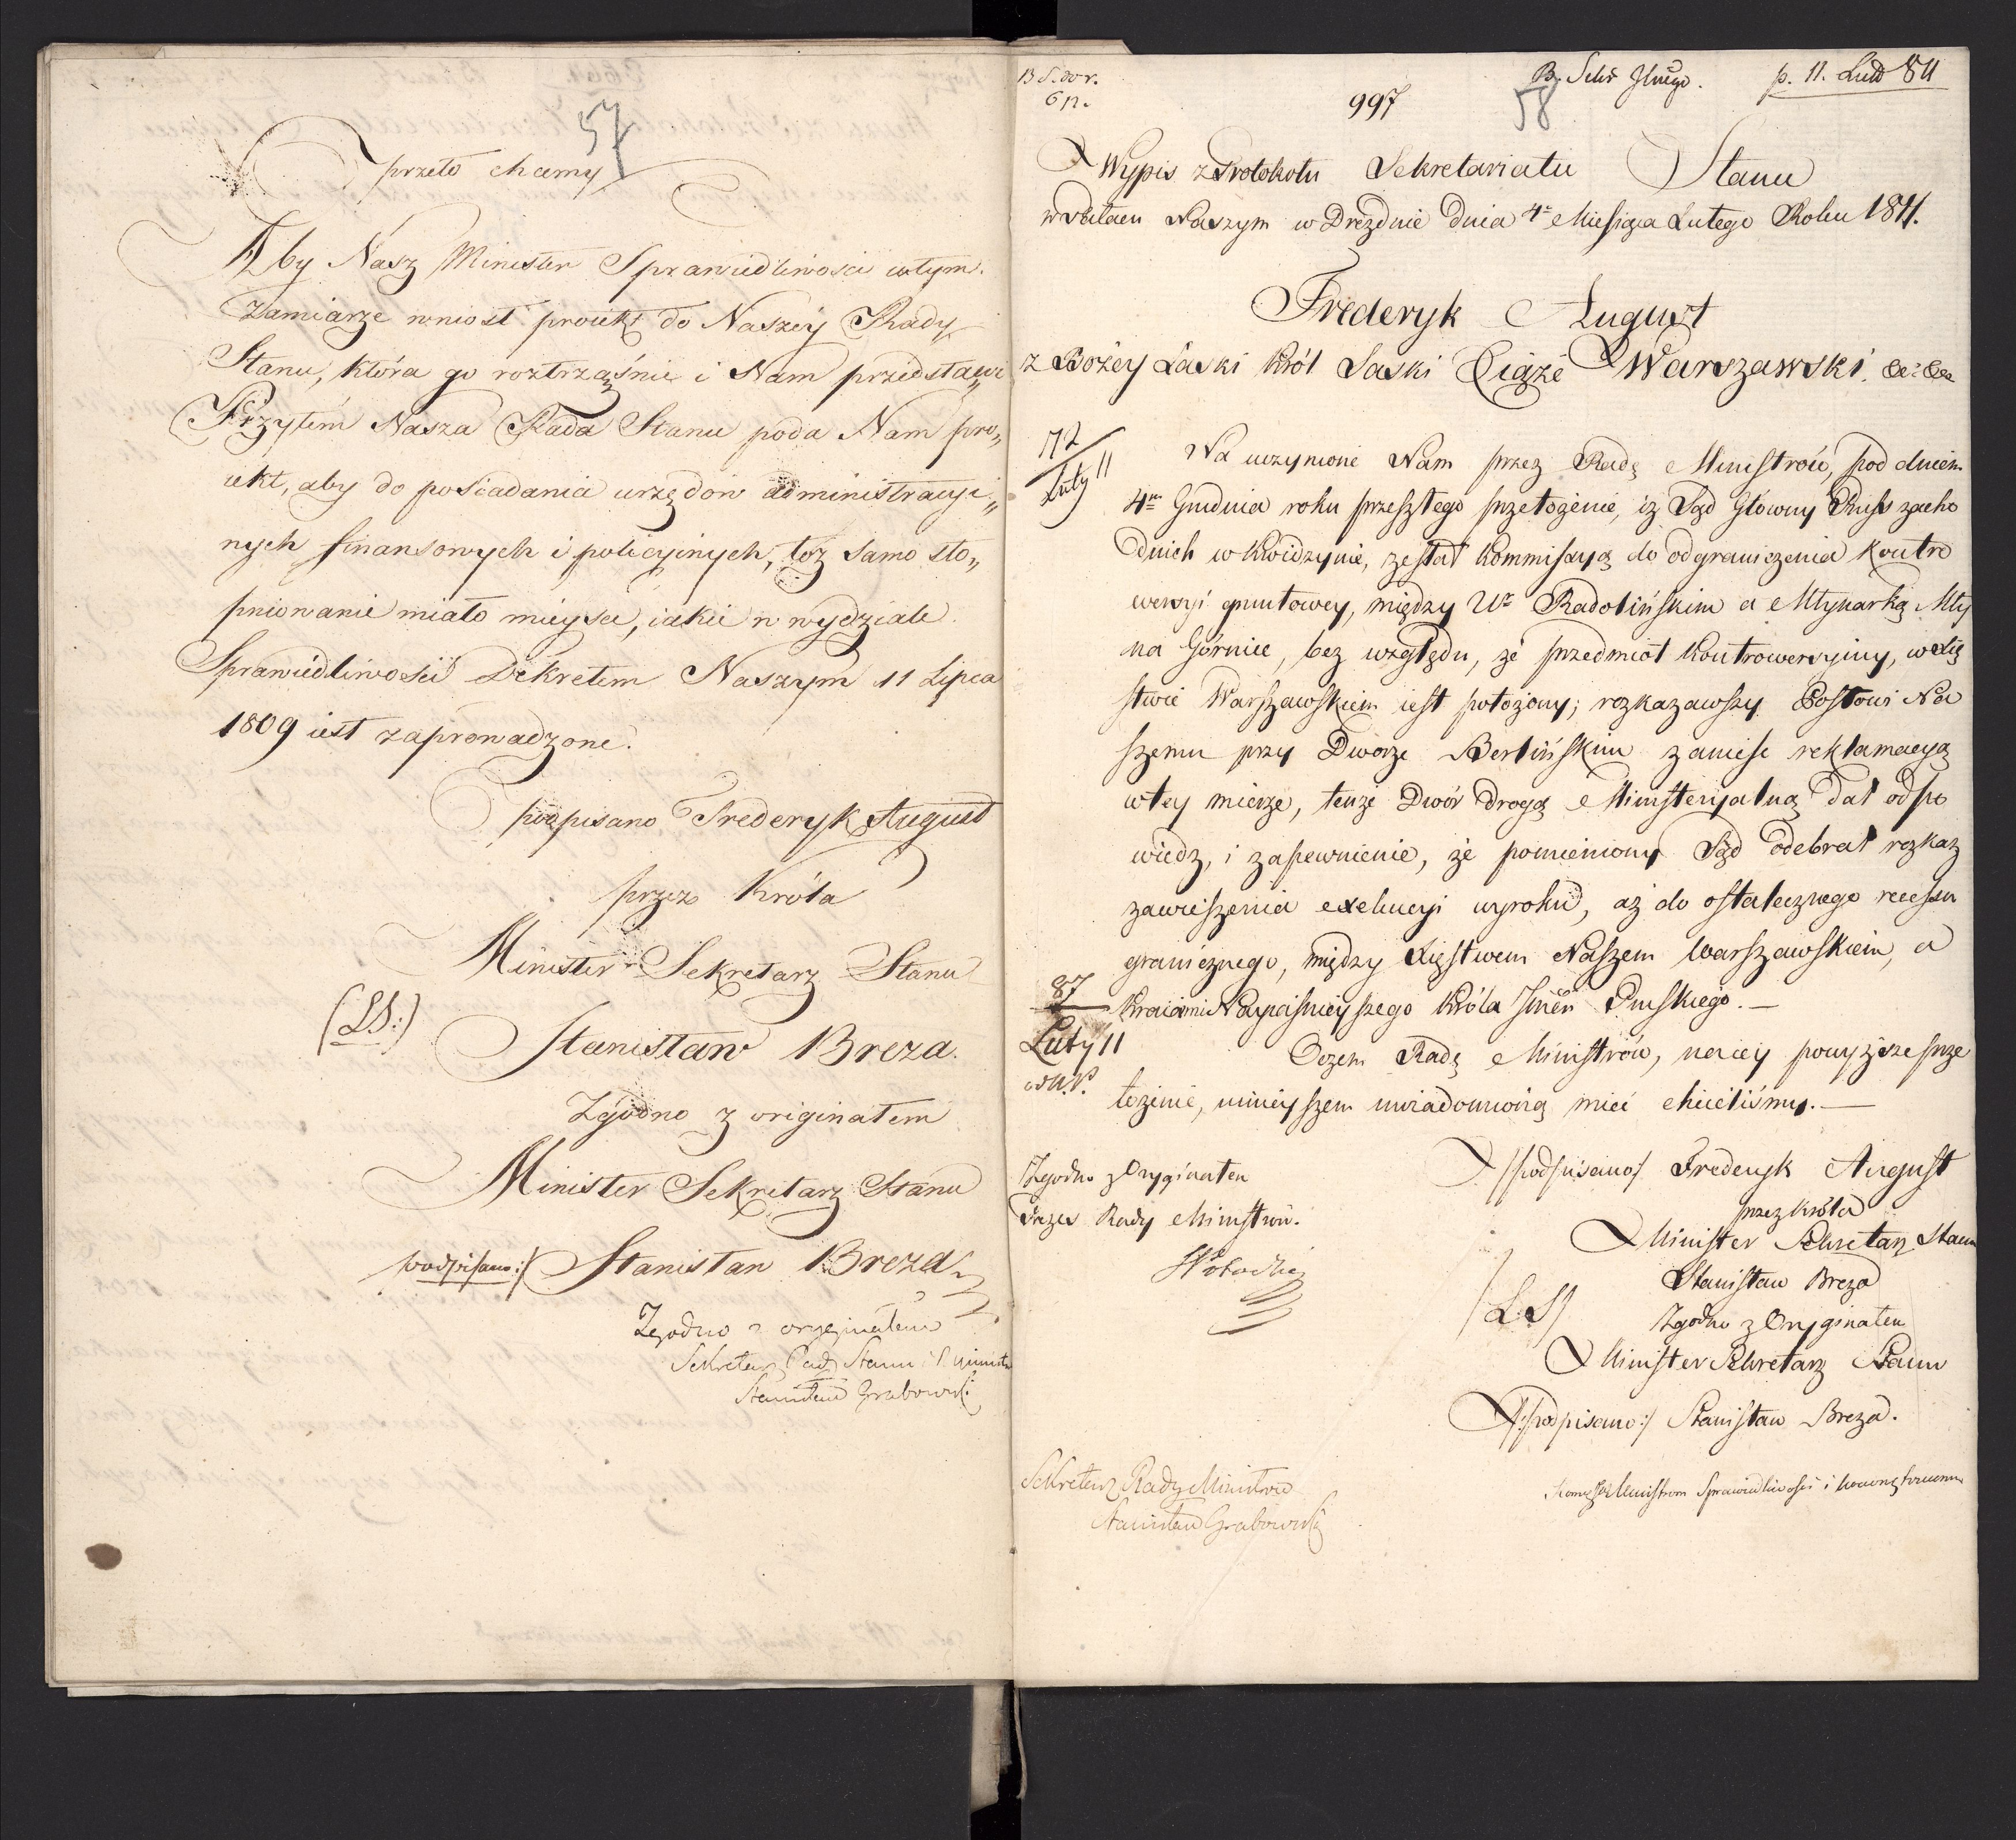 57
przeto chcemy
Aby Nasz Minister Sprawiedliwości wtym
zamiarze wniosł proiekt do Naszéy Rady
Stanu, która go roztrząśnie i Nam przedstawi
Przytém Nasza Rada Stanu poda Nam pro„
iekt, aby do posiadania urzędów administracyi„
nych finansowych i policyinych, toż samo sto„
pniowanie miało mieysce, iakie w wydziale
Sprawiedliwości Dekretem Naszym 11 Lipca
1809 iest zaprowadzone.
podpisano Frederyk August
przez Króla
Minister Sekretarz Stanu
(LS:)
Stanisław Breza.
Zgodno z originałem
Minister Sekretarz Stanu
podpisano:/ Stanisław Breza
Zgodno z oryginałem
Sekretarz Rady Stanu i R. Ministr
Stanisław Grabowski
p. 11. Lut 811
6 p.
997
58
Wypis z Protokołu Sekretariatu Stanu
w Pałacu Naszym w Dreznie Dnia 4º Miesiąca Lutego Roku 1811.
Frederyk August
z Bożey Łaski Król Saski Xiąże Warszawski. &c: &c:
172
Luty 11
Na uczynione Nam przez Radę Ministrów, pod dniem
4m Grudnia roku przeszłego przełożenie, iż Sąd Główny Pruss zacho
dnich w Kwidzynie, zesłał Kommissyą do odgraniczenia Kontro
wersyi gruntowey, między Ur Radolińskim a Młynarką Mły
na Górnice, bez względu, że przedmiot Kontrowersyiny, w Xię
stwie Warszawskiem iest położony; rozkazawszy Posłowi Na
szemu przy Dworze Berlińskim zanieść reklamacyą
wtey mierze, tenże Dwór drogą Ministeryalną dał odpo
wiedź, i zapewnienie, że pomieniony Sąd odebrał rozkaz
zawieszenia exekucyi wyroku, aż do ostatecznego recessu
granicznego, między Xięstwem Naszem Warszawskiem, a
Kraiami Nayiaśnieyszego Króla Jmći Pruskiego. —
87
Luty 11
Oczem Radę Ministrów, na iey powyższe prze
łożenie, ninieyszem uwiadomioną mieć chcieliśmy. —
/podpisano/ Frederyk August
przez Króla
Minister Sekretarz Stanu
Stanisław Breza
/L.S/
Zgodno z Oryginałem
Minister Sekretarz Stanu
/:podpisano:/ Stanisław Breza.
Zgodno z Oryginałem
Prezes Rady Ministrów.
Sekretarz Rady Ministrów
Stanisław Grabowski